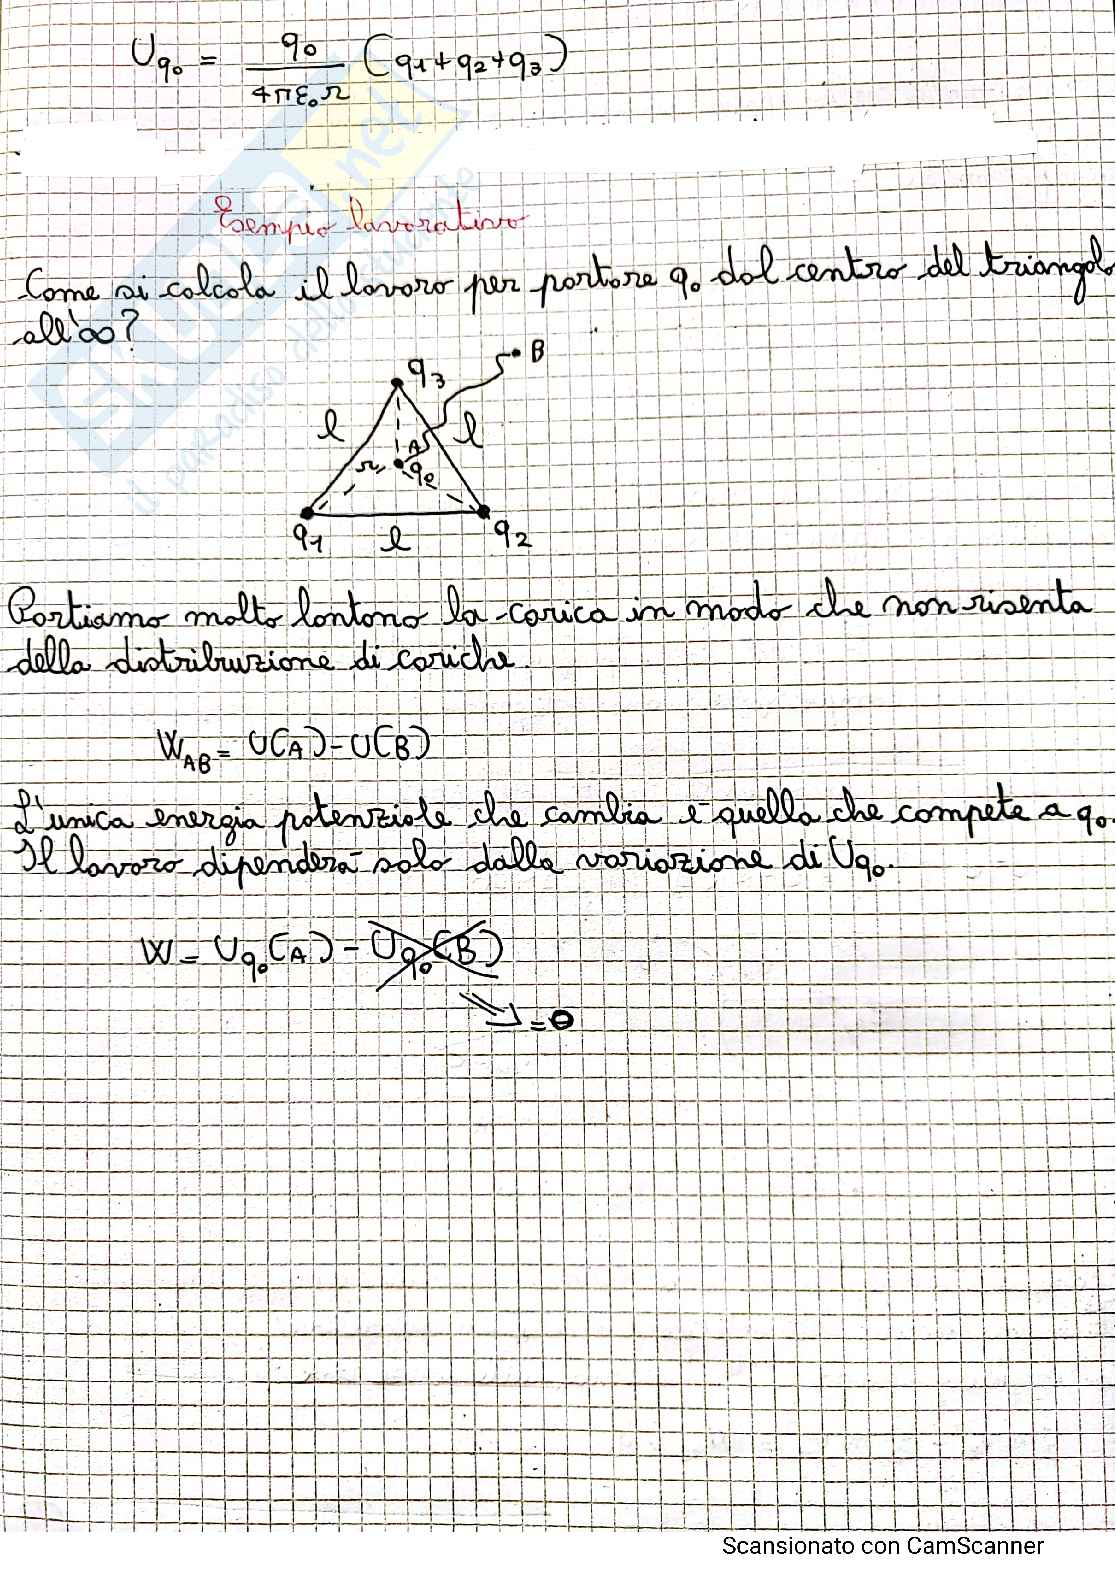 Uq₀ = q₀ / 4πε₀r (q1+q2+q3)
Esempio lavorativo
Come si calcola il lavoro per portare q₀ dal centro del triangolo
all'∞?
B
q3
l
l
A
r
q₀
q1
l
q2
Portiamo molto lontano la carica in modo che non risenta
della distribuzione di cariche.
W_AB = U(A)-U(B)
L'unica energia potenziale che cambia è quella che compete a q₀.
Il lavoro dipenderà solo dalla variazione di Uq₀.
W = Uq₀(A) - Uq₀(B)
⇒ = 0
Scansionato con CamScanner